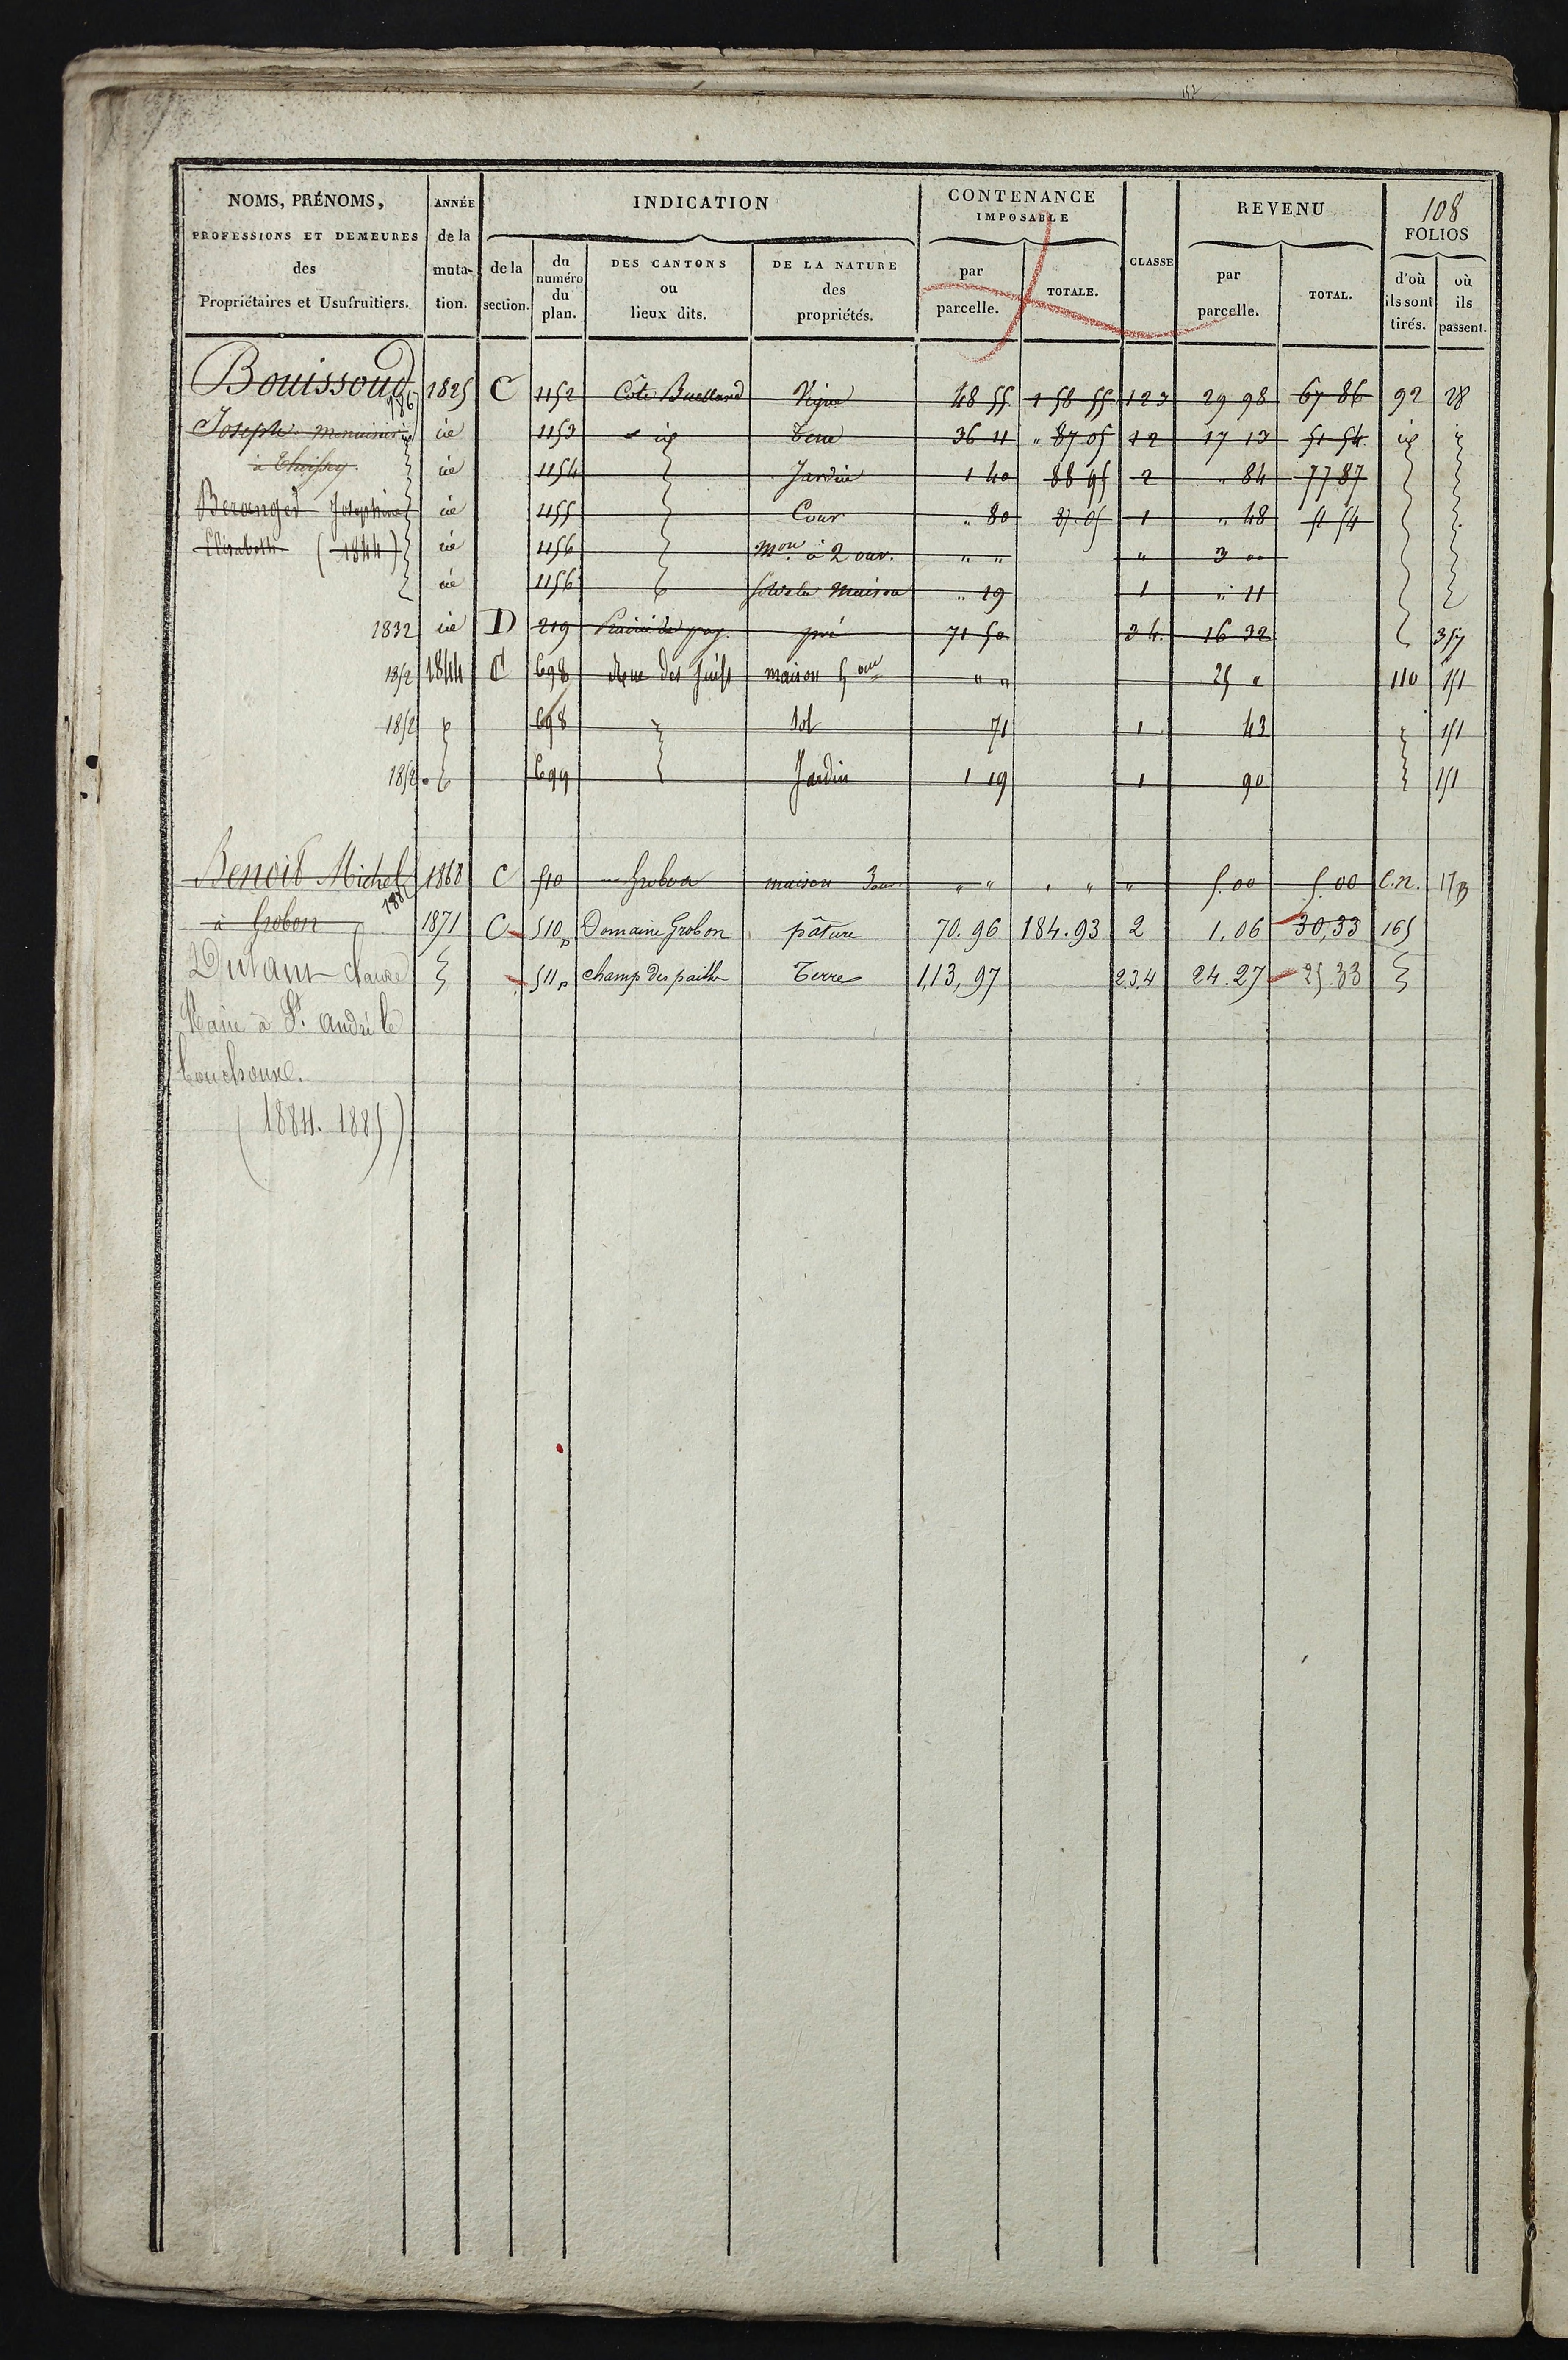 152
108
NOMS, PRÉNOMS, PROFESSIONS ET DEMEURES des Propriétaires et Usufruitiers.
ANNÉE de la muta- tion.
INDICATION
de la section.
du numéro du plan.
DES CANTONS ou lieux dits.
DE LA NATURE des propriétés.
CONTENANCE IMPOSABLE
par parcelle.
TOTALE.
CLASSE
REVENU
par parcelle.
TOTAL.
FOLIOS
d'où ils sont tirés.
où ils passent.
Bouissoud 1825 C 1152 Côte Vigne 48 55 1 58 55 123 29 98 67 86 92 28
Joseph menuisier id 1153 id Terre 36 11 " 87.05 12 17 13 51 54 id id
à Thoissey id 1154 Jardin 1 40 88 95 2 " 84 77 87
Berenger Josephine id 1155 Cour " 80 87.05 1 " 48 51 54
Elisabeth (1844) id 1156 Mon à 2 ouv. " " " 3 00
id 1156 sol de la Maison " 19 1 " 11
1832 id D 219 pré 71 50 34 16 32 357
1852 1844 C 698 Rue des Juifs maison 5 ouv " " 25 " 110 151
1852 698 Sol 71 1 43 151
1852 699 Jardin 1 19 1 90 151
Benoit Michel 1868 C 510 Grobon maison 3 ouv " " " " " 5.00 5.00 C.n. 173
à Grobon 1871 C 510p Domaine Grobon pâture 70.96 184.93 2 1.06 30,33 165
Dutant Claude 511p champ des paille Terre 1,13,97 2.3.4 24.27 25.33
Maire à St. André le
bouchoux.
(1884. 1885)